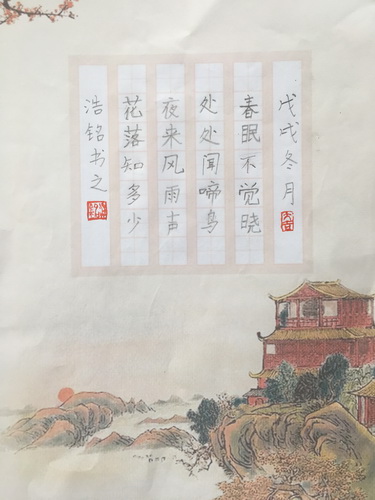 戊戌冬月
春眠不觉晓
处处闻啼鸟
夜来风雨声
花落知多少
浩铭书之